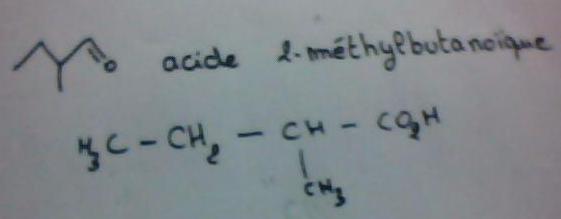 O acide 2-méthylbutanoïque
H₃C - CH₂ - CH - CO₂H
CH₃